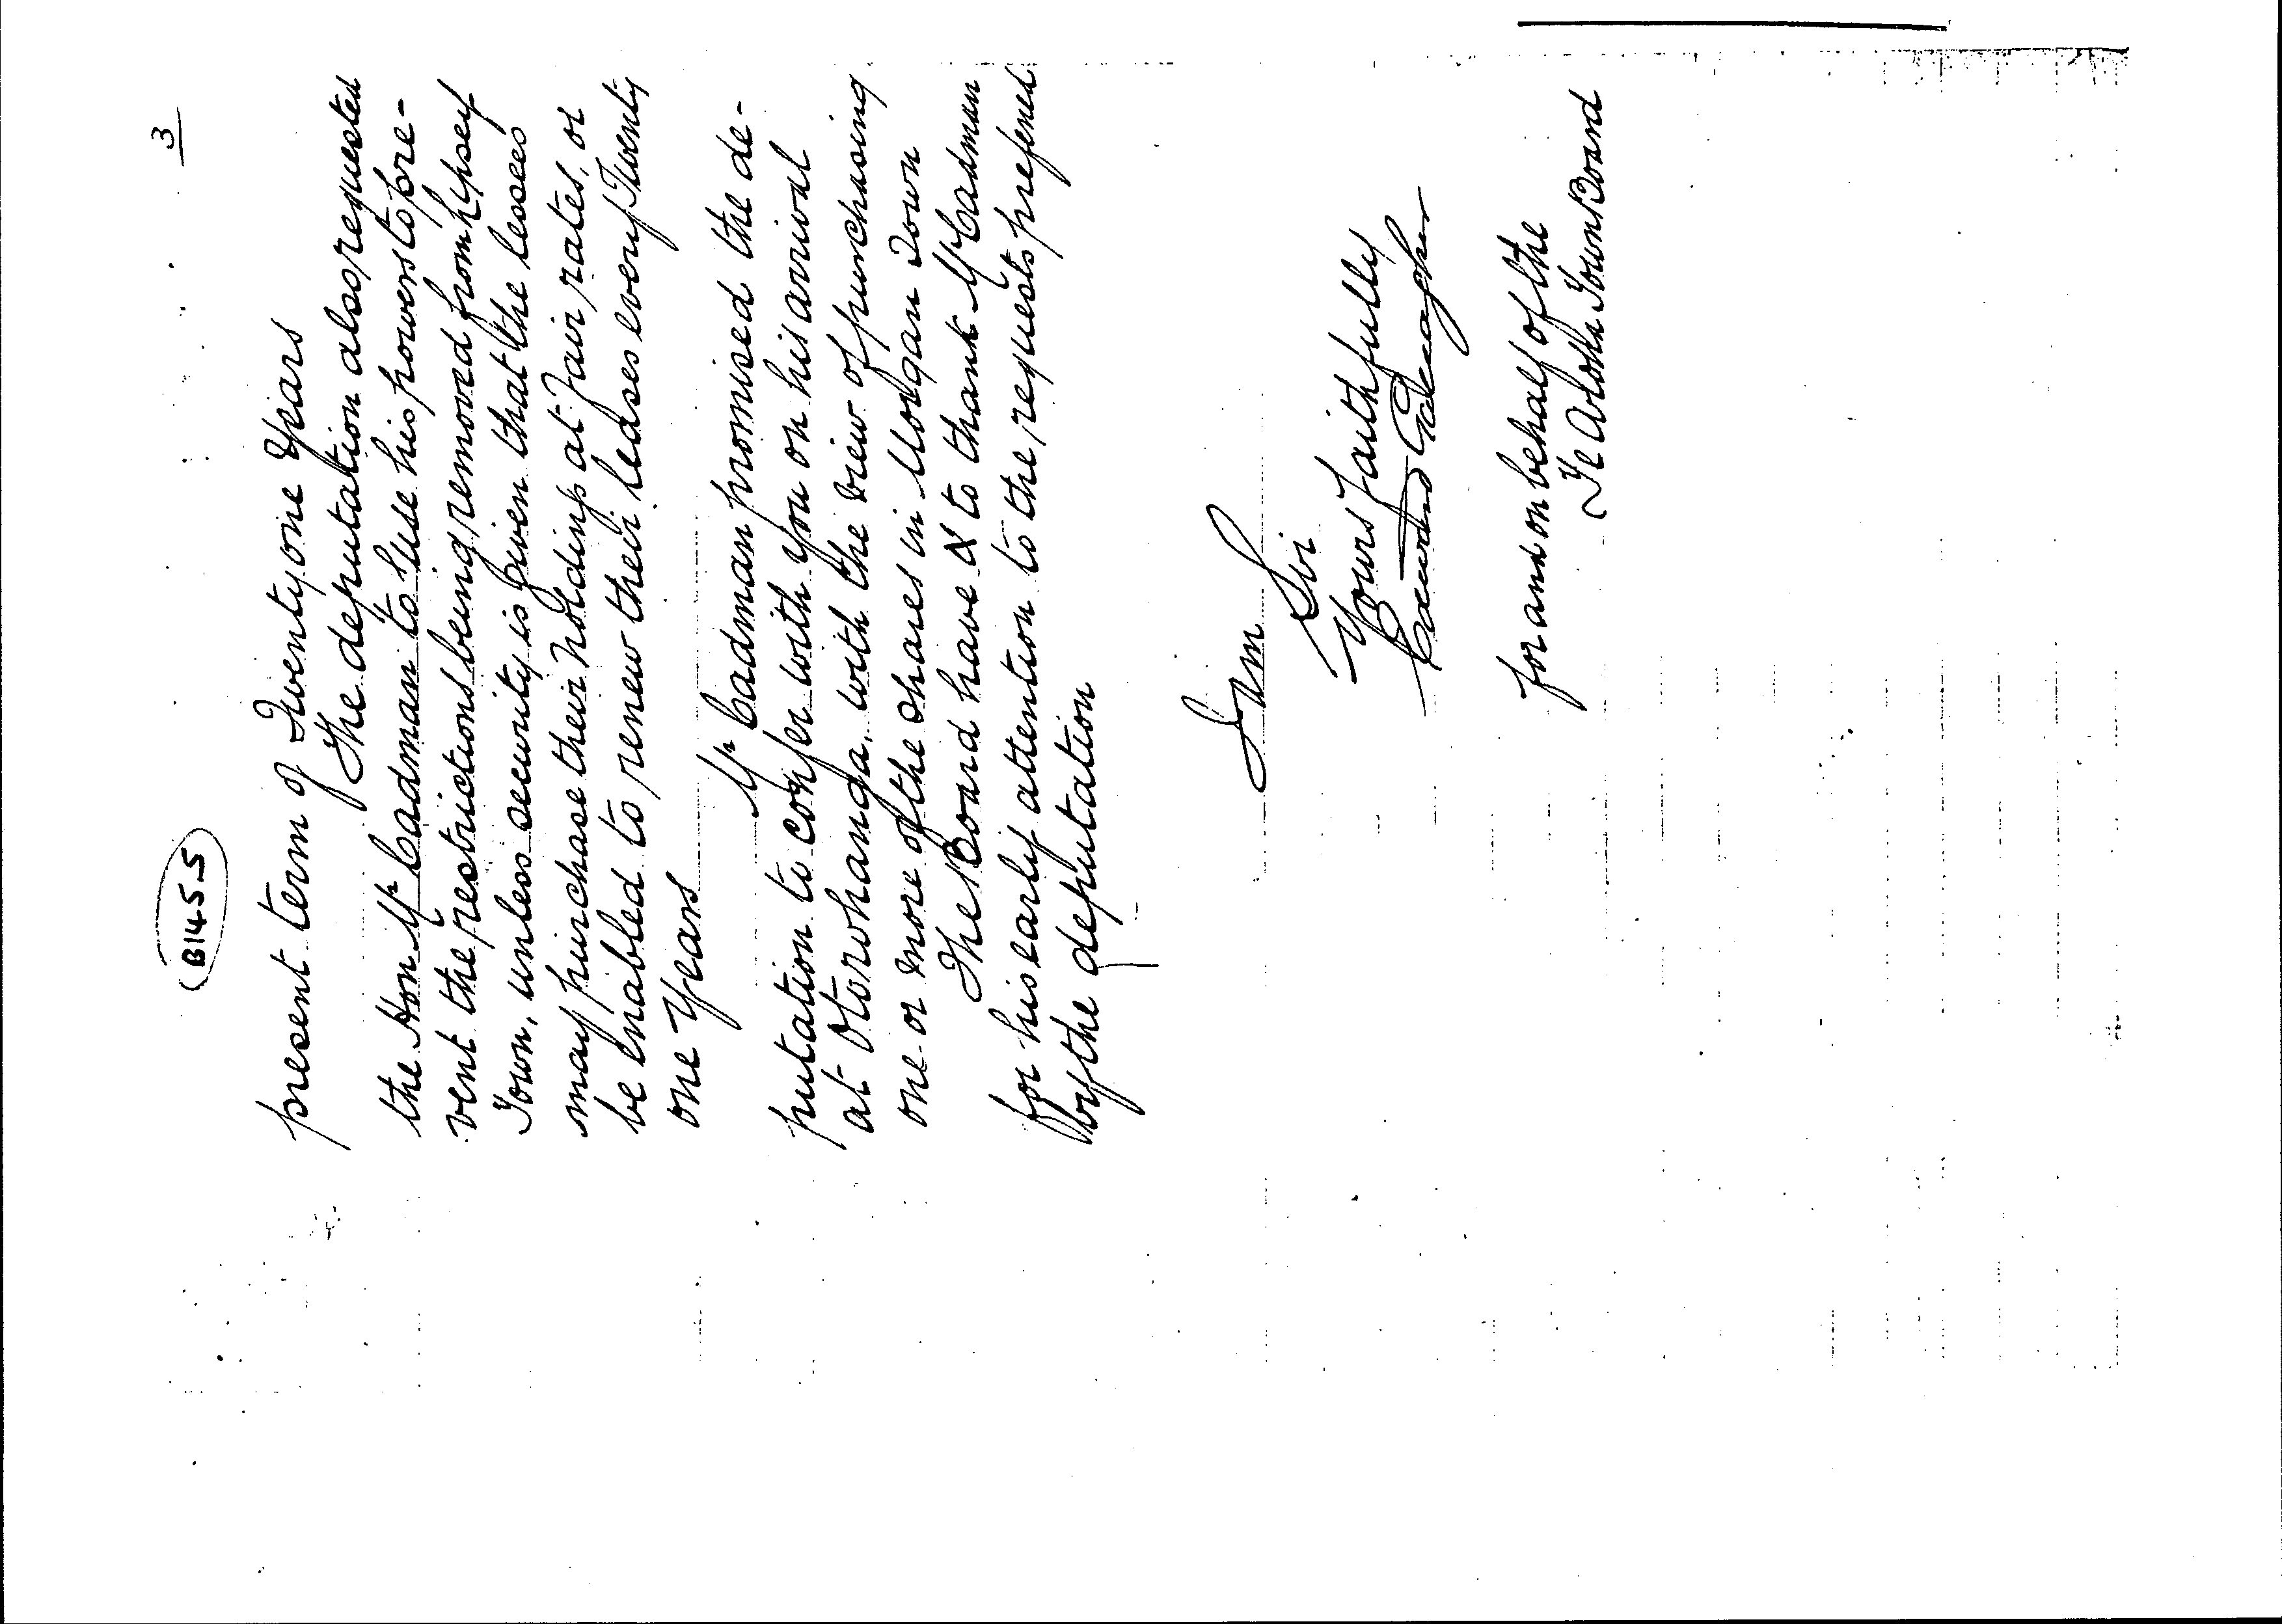 B145-5
3
present term of Twenty one Years
The deputation also requested
the Hon Mr Cadman to use his powers to pre-
vent the restrictions being removed from Lipsey
Town, unless security is given that the lessees
may purchase their holdings at fair rates, or
be enabled to renew their leases every Twenty
one Years
Mr Cadman promised the de-
putation to confer with you on his arrival
at Otorohanga, with the view of purchasing
one or more of the shares in Morgan Town
The Board have to thank Mr Cadman
for his early attention to the requests prefered
by the deputation
I am
Sir
Yours faithfully
Edward Gallagher
for and on behalf of the
Te Aroha Town Board